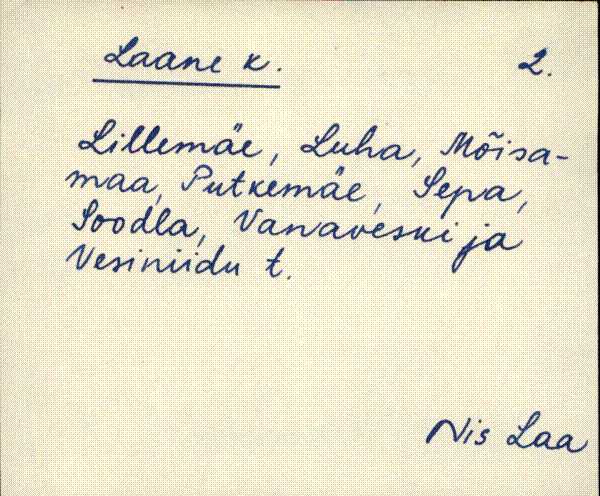 Laane k. 2.
Lillemäe, Luha, Mõisa-
maa, Putkemäe, Sepa,
Soodla, Vanaveski ja
Vesiniidu t.
Nis Laa